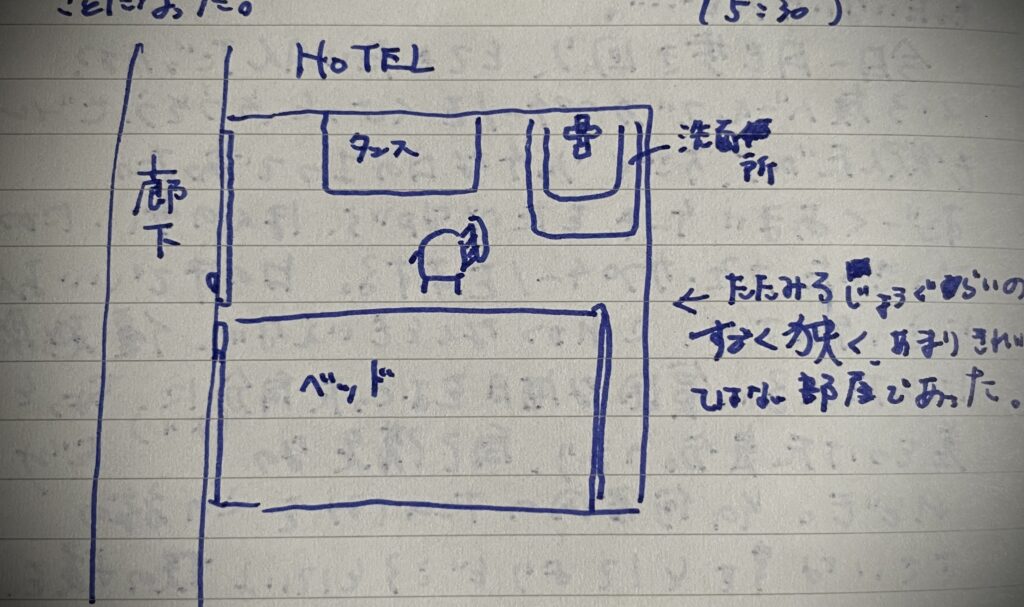 ことになった。
(5:30)
HOTEL
タンス
洗面
所
廊
下
← たたみ3じょうぐらいの
すごく狭く あまりきれい
ではない部屋であった。
ベッド